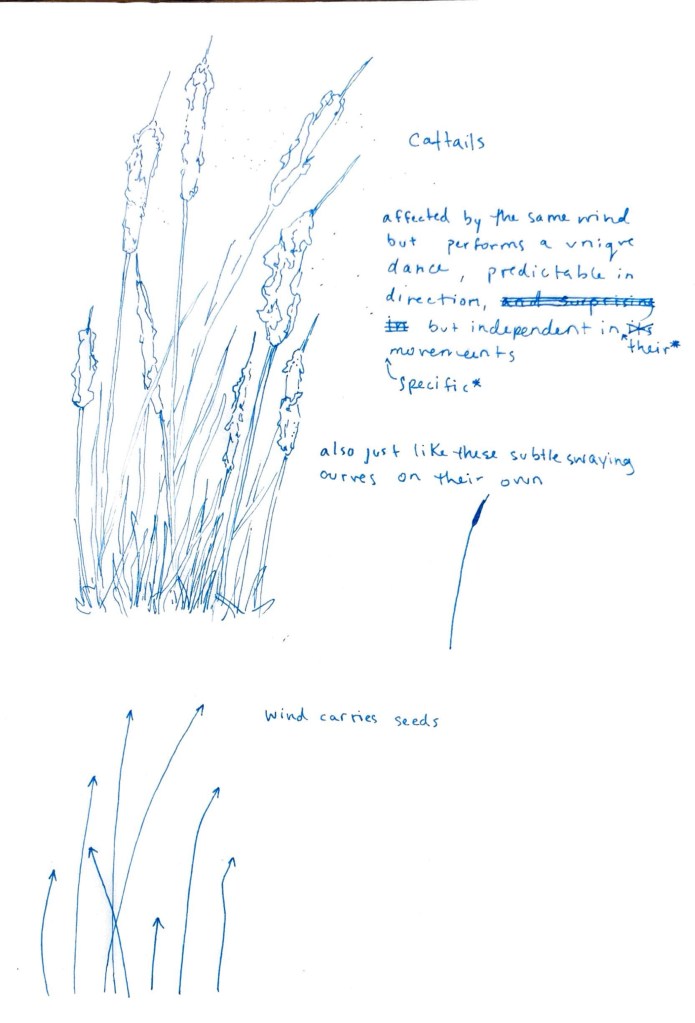 Cattails
affected by the same wind
but performs a unique
dance, predictable in
direction, and surprising
in but independent in its
their*
movements
specific*
also just like these subtle swaying
curves on their own
wind carries seeds